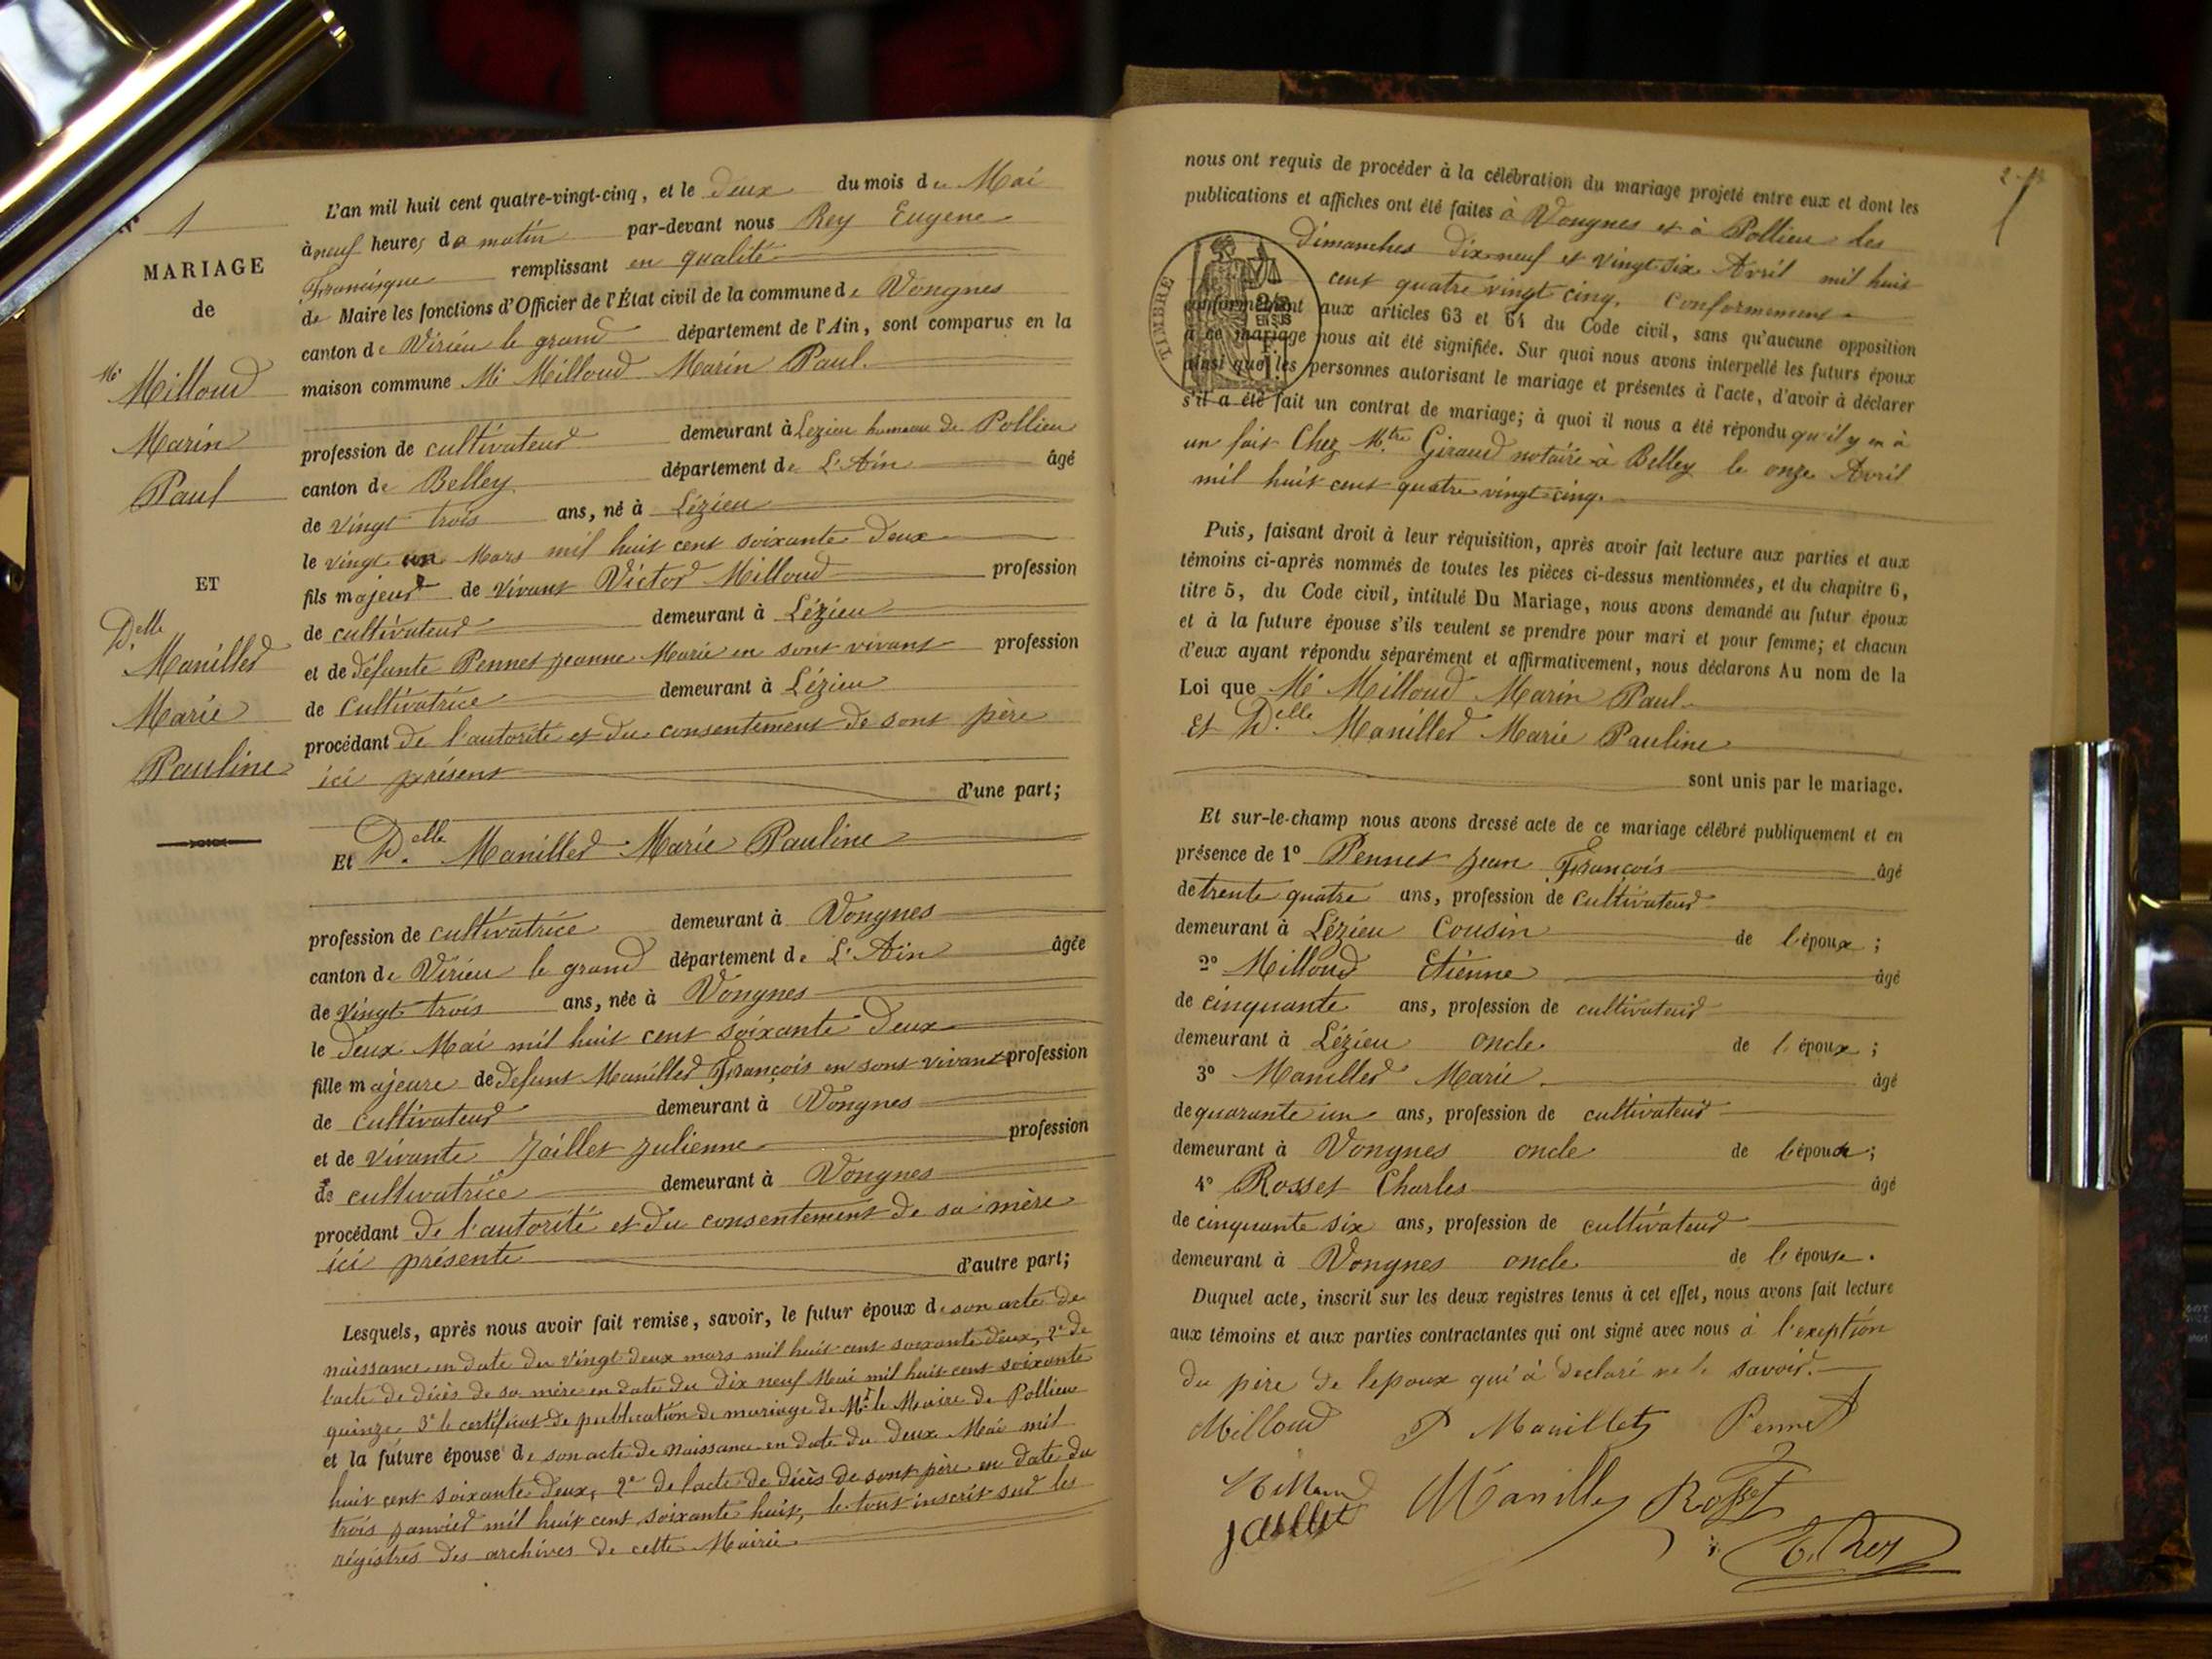 N° 1
MARIAGE
de
Mr Milloud
Marin
Paul
ET
Delle
Manillier
Marie
Pauline
L'an mil huit cent quatre-vingt-cinq, et le deux du mois de Mai
à neuf heures da matin par-devant nous Rey Eugène
Francisque remplissant en qualité
de Maire les fonctions d'Officier de l'État civil de la commune de Vongnes
canton de Virieu le grand département de l'Ain, sont comparus en la
maison commune Mr Milloud Marin Paul.
profession de cultivateur demeurant à Lezieu hameau de Pollieu
canton de Belley département de L'Ain âgé
de vingt trois ans, né à Lézieu
le vingt un Mars mil huit cent soixante deux
fils majeur de vivant Victor Milloud profession
de cultivateur demeurant à Lézieu
et de défunte Pennet Jeanne Marie en sont vivant profession
de Cultivatrice demeurant à Lézieu
procédant de l'autorité et du consentement de sont père
ici présent d'une part;
Et Delle Manillier Marie Pauline
profession de cultivatrice demeurant à Vongnes
canton de Virieu le grand département de L'Ain âgée
de vingt trois ans, née à Vongnes
le deux Mai mil huit cent soixante deux
fille majeure de Défunt Manillier François en sont vivant profession
de cultivateur demeurant à Vongnes
et de vivante Jaillet Julienne profession
de cultivatrice demeurant à Vongnes
procédant de l'autorité et du consentement de sa mère
ici présente d'autre part;
Lesquels, après nous avoir fait remise, savoir, le futur époux de son acte de
naissance en date du vingt deux mars mil huit cent soixante deux, 2° de
l'acte de décès de sa mère en date du dix neuf Mai mil huit cent soixante
quinze, 3° le certificat de publication de mariage de Mr le Maire de Pollieu
et la future épouse de son acte de naissance en date du deux Mai mil
huit cent soixante deux, 2° de l'acte de décès de sont père en date du
trois janvier mil huit cent soixante huit, le tout inscrit sur les
régistres des archives de cette Mairie
nous ont requis de procéder à la célébration du mariage projeté entre eux et dont les
publications et affiches ont été faites à Vongnes et à Pollieu les
dimanches dix neuf et vingt six Avril mil huit
cent quatre vingt cinq. Conformement
conformément aux articles 63 et 64 du Code civil, sans qu'aucune opposition
à ce mariage nous ait été signifiée. Sur quoi nous avons interpellé les futurs époux
ainsi que les personnes autorisant le mariage et présentes à l'acte, d'avoir à déclarer
s'il a été fait un contrat de mariage; à quoi il nous a été répondu qu'il y en à
un fait Chez Mtre Giraud notaire à Belley le onze Avril
mil huit cent quatre vingt cinq.
TIMBRE
Puis, faisant droit à leur réquisition, après avoir fait lecture aux parties et aux
témoins ci-après nommés de toutes les pièces ci-dessus mentionnées, et du chapitre 6,
titre 5, du Code civil, intitulé Du Mariage, nous avons demandé au futur époux
et à la future épouse s'ils veulent se prendre pour mari et pour femme; et chacun
d'eux ayant répondu séparément et affirmativement, nous déclarons Au nom de la
Loi que Mr Milloud Marin Paul
et Delle Manillier Marie Pauline
sont unis par le mariage.
Et sur-le-champ nous avons dressé acte de ce mariage célébré publiquement et en
présence de 1° Pennet Jean François âgé
de trente quatre ans, profession de cultivateur
demeurant à Lézieu Cousin de l'époux;
2° Milloud Etienne âgé
de cinquante ans, profession de cultivateur
demeurant à Lézieu oncle de l'époux;
3° Manillier Marie âgé
de quarante un ans, profession de cultivateur
demeurant à Vongnes oncle de l'épouse;
4° Rosset Charles âgé
de cinquante six ans, profession de cultivateur
demeurant à Vongnes oncle de l'épouse.
Duquel acte, inscrit sur les deux registres tenus à cet effet, nous avons fait lecture
aux témoins et aux parties contractantes qui ont signé avec nous à l'exeption
du père de lepoux qui à declaré ne le savoir.
Milloud P Manillier Pennet
Milloud Manillier Rosset
jaillet
E. Rey